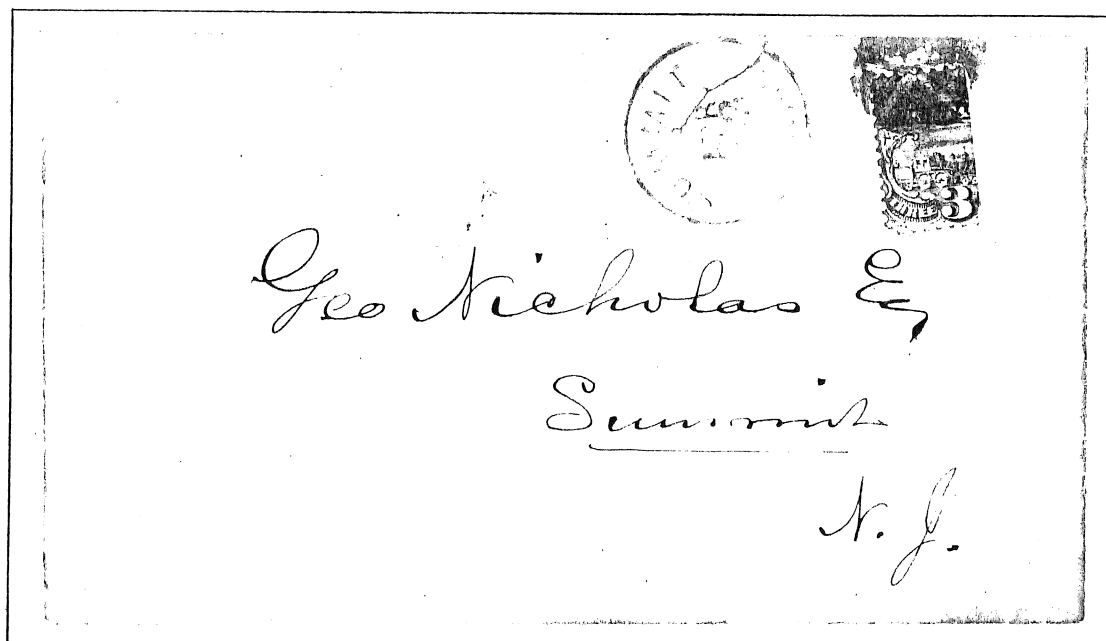 3
Geo Nicholas Esq
Summit
N. J.